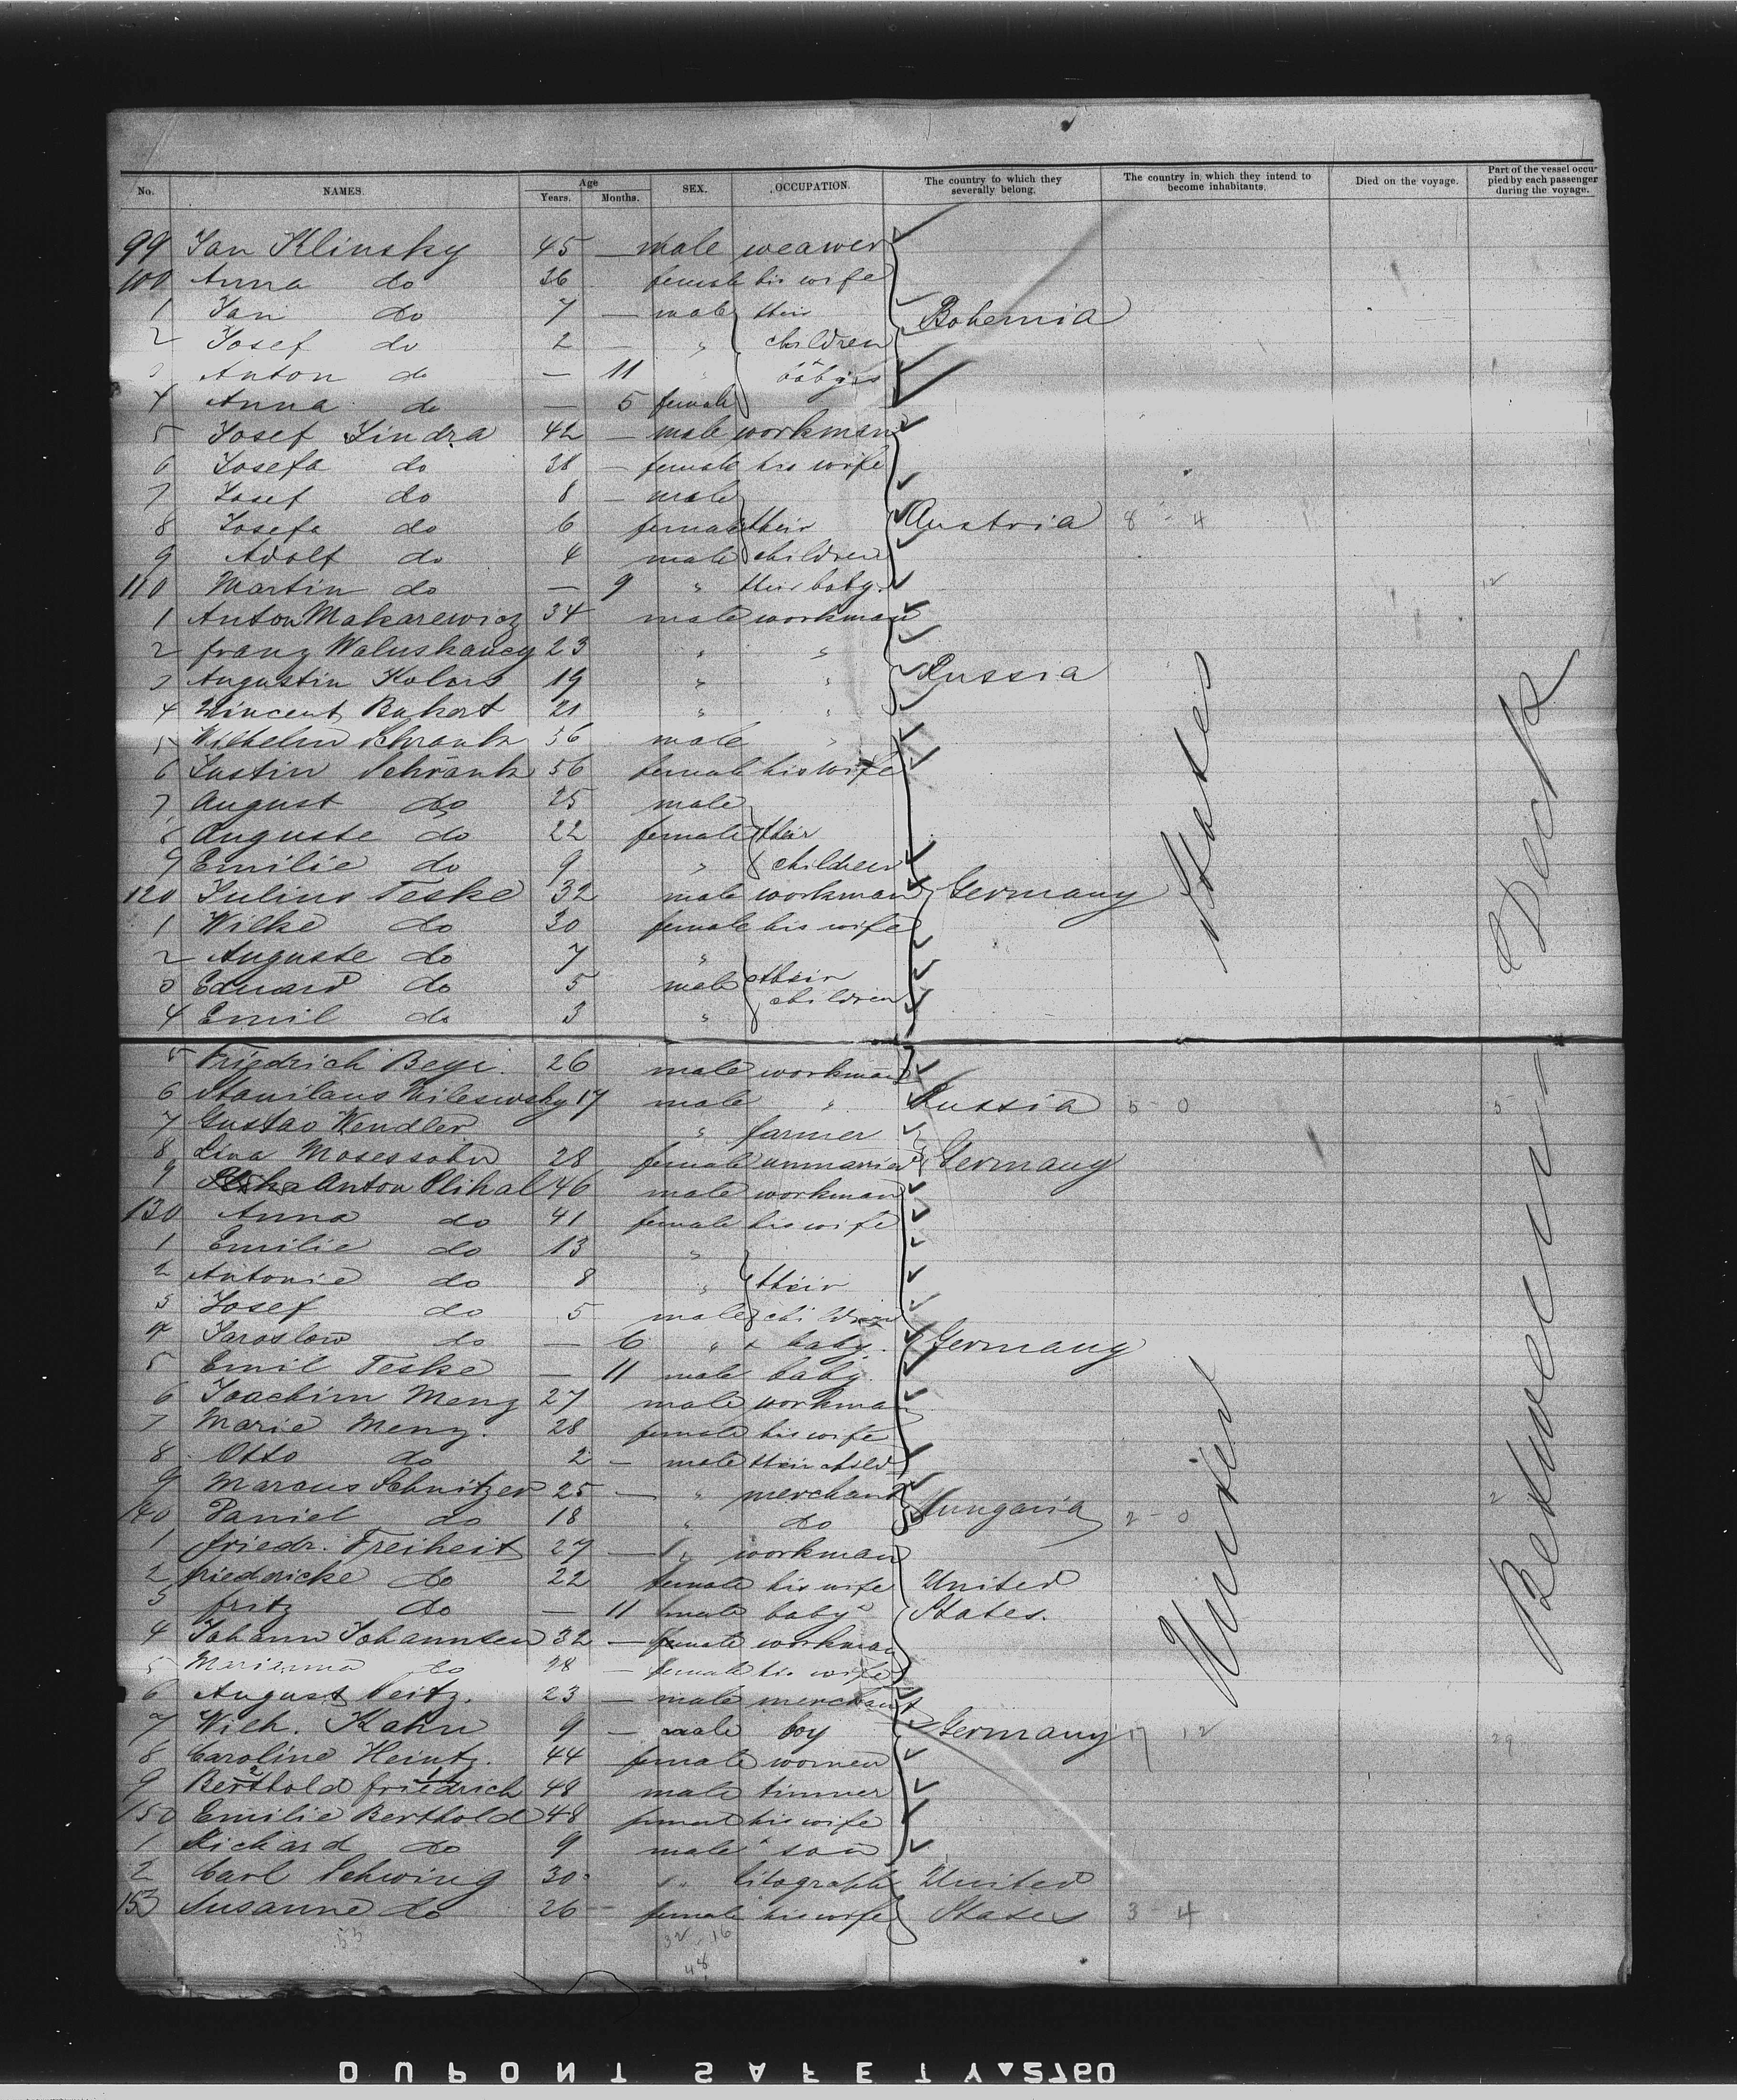 No. NAMES. Age Years. Months. SEX. OCCUPATION. The country to which they severally belong. The country in which they intend to become inhabitants. Died on the voyage. Part of the vessel occupied by each passenger during the voyage.
99 Jan Klinsky 45 — male weawer
100 Anna do 36 female his wife
1 Jan do 7 — male their Bohemia
2 Josef do 2 — " children
Anton do — 11 "
4 Anna do — 5 female
5 Josef Jindra 42 — male workman
6 Josefa do 38 — female his wife
7 Josef do 8 — male
8 Josefa do 6 female their Austria 8 - 4
9 Adolf do 4 male children
110 Martin do — 9 " their baby. 12
1 Anton Makarewicz 34 male workman
2 franz Waluskancy 23 " "
3 Augustin Kolars 19 " " Russia
4 Vincent Bukort 21 " "
5 Wilhelm Schrank 56 male "
6 Justin Schrank 56 female his wife
7 August do 25 male
8 Auguste do 22 female their
9 Emilie do 9 " children
120 Julius Teske 32 male workman Germany
1 Wilke do 30 female his wife
2 Auguste do 7 "
3 Eduard do 5 male their children
4 Emil do 3 "
5 Friedrich Beyi. 26 male workman
6 Stanilaus Wilesiwsky 17 male " Russia 5 - 0 5
7 Gustav Wendler " farmer
8 Lina Mosessohn 28 female unmaried Germany
9 Anton Plihal 46 male workman
130 Anna do 41 female his wife
1 Emilie do 13 "
2 Antonie do 8 " their
3 Josef do 5 male children
4 Jaroslow do — 6 " & baby. Germany
5 Emil Teske — 11 male baby.
6 Joachim Menz 27 male workman
7 Marie Menz. 28 female his wife
8 Otto do 2 — male their child
9 Marcus Schnitzer 25 — " merchant Hungaria 2
140 Daniel do 18 " do 2 - 0
1 friedr. Freiheit 27 — " workman
2 friedericke do 22 female his wife United
3 fritz do — 11 male baby States.
4 Johann Johannsen 32 — male workman
5 Marianna do 28 — female his wife
6 August Seitz. 23 — male merchant
7 Wilh. Kahn 9 — male boy Germany 17 12 29
8 Caroline Heintz. 44 female women
9 Berthold friedrich 48 male tinner
150 Emilie Berthold 48 female his wife
1 Richard do 9 male " son
2 Carl Schwing 30 " litograph United
153 Susanne do 26 — female his wife States 3 - 4
53 32 16
48
United States
Betweenn Deck
DUPONT SAFETY 2760